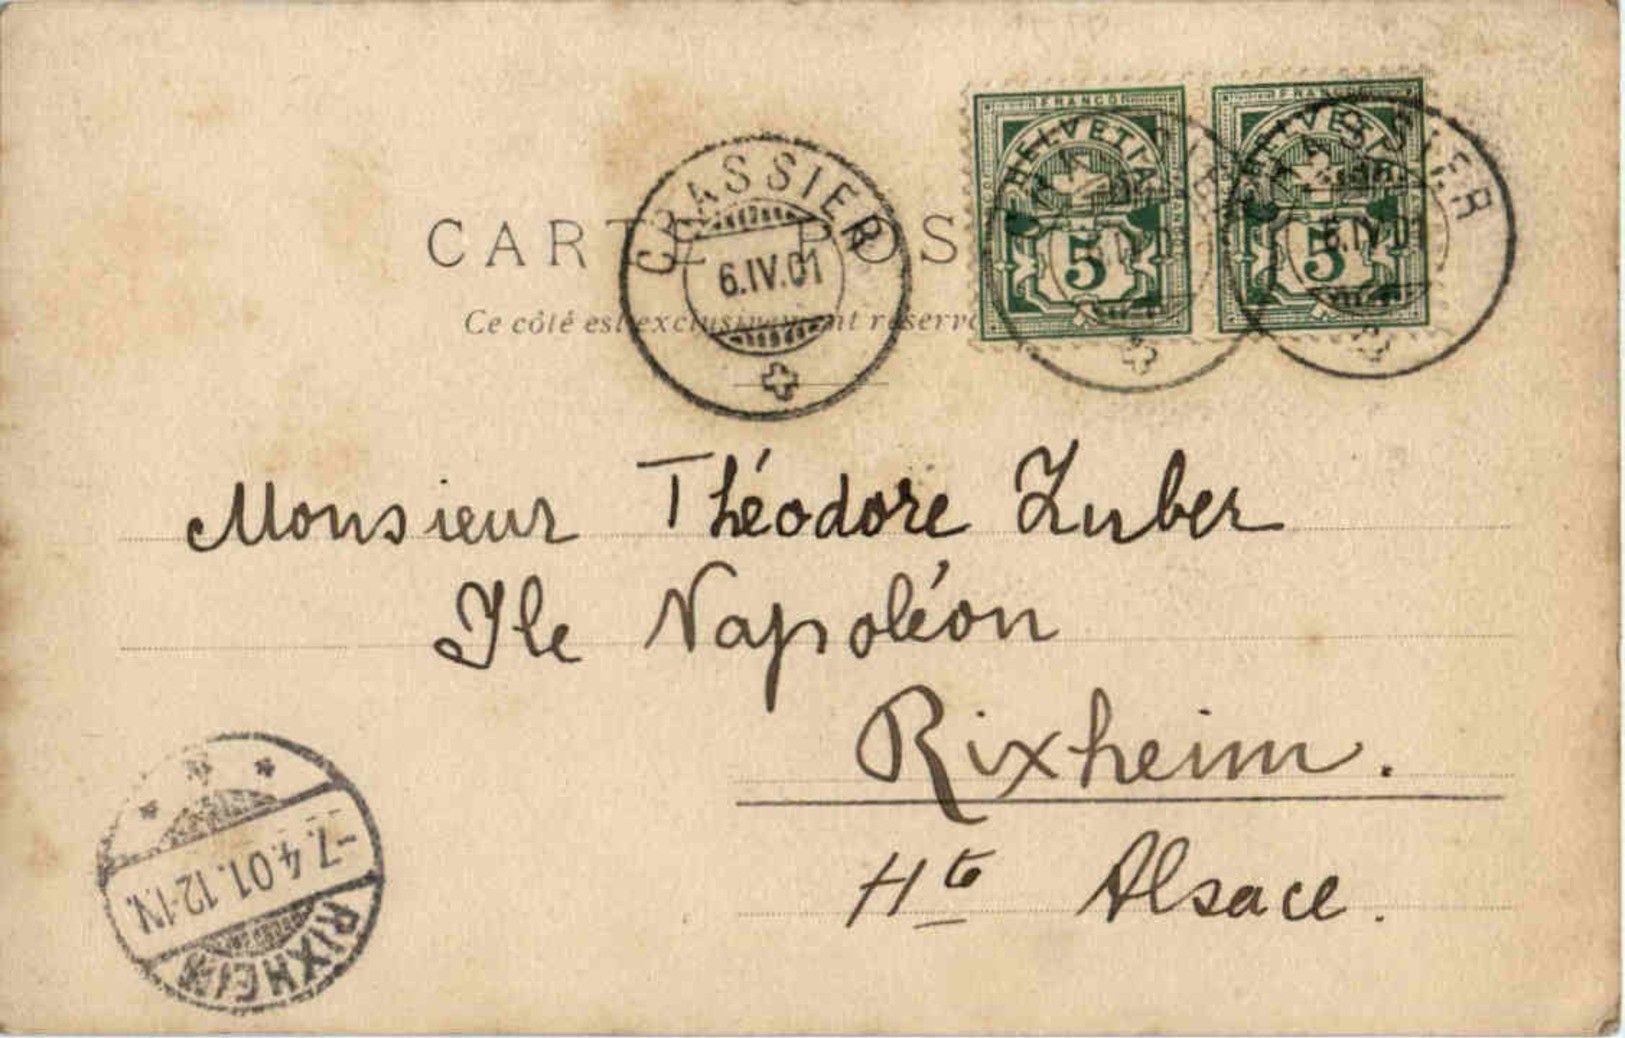 FRANCO FRANCO
HELVETIA HELVETIA
5 5
CRASSIER
6.IV.01
CRASSIER
6.IV.01
CART POS
Ce côté est exclusivement réservé
Monsieur Théodore Zuber
Ile Napoléon
Rixheim.
Hte Alsace.
-7.4.01.12-1N.
RIXHEIM